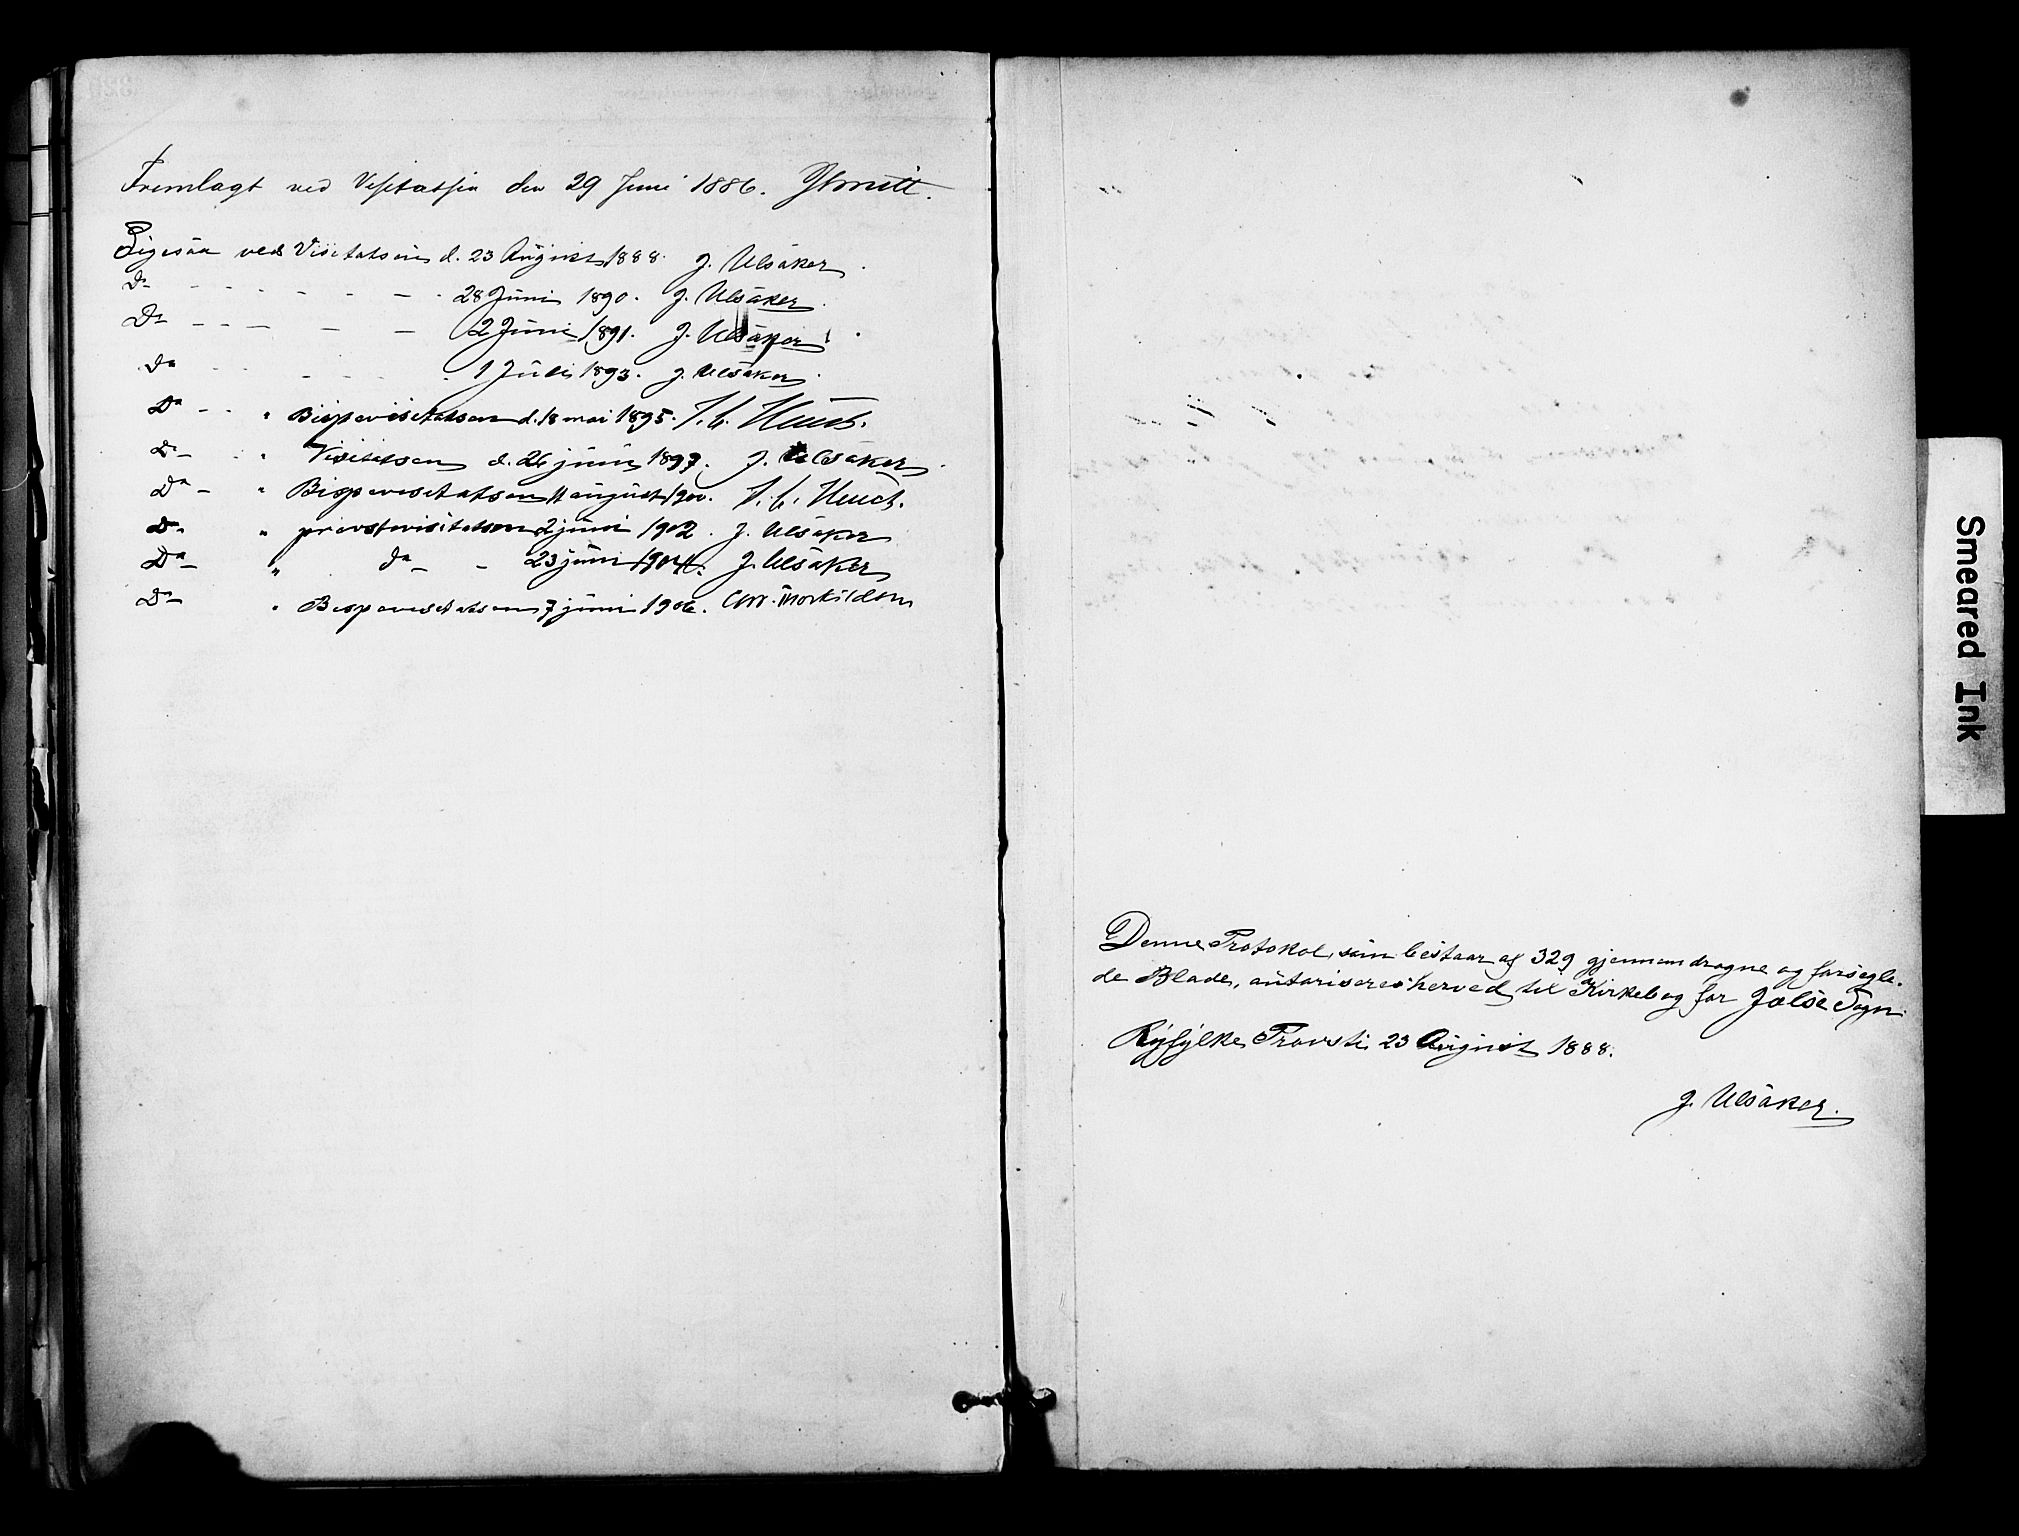 Fremlagt ved Visitatsen den 29 Juni 1886.
Ligesaa ved Visitatsen d. 23 August 1888. J. Ulsåker.
Do - - - - - - - 28 Juni 1890. J. Ulsåker.
Do - - - - - 2 Juni 1891. J. Ulsåker.
Do - - - - - 1 Juli 1893. J. Ulsåker.
Do - - " Bispevisitatsen d. 18 mai 1895. J. C. Heuch.
Do - - " Visitatsen d. 26 juni 1897. J. Ulsåker.
Do - " Bispevisitatsen 11 august 1900. J. C. Heuch.
Do - " provstevisitatsen 2 juni 1902. J. Ulsåker
Do - " do - - 23 juni 1904. J. Ulsåker
Do - " Bispevisitatsen 7 juni 1906.
Denne Protokol, som bestaar af 329 gjennemdragne og forsegle-
de Blade, autoriseres herved til Kirkebog for Jelse Sogn.
Ryfylke Provsti 23 August 1888.
J. Ulsåker.
Smeared Ink